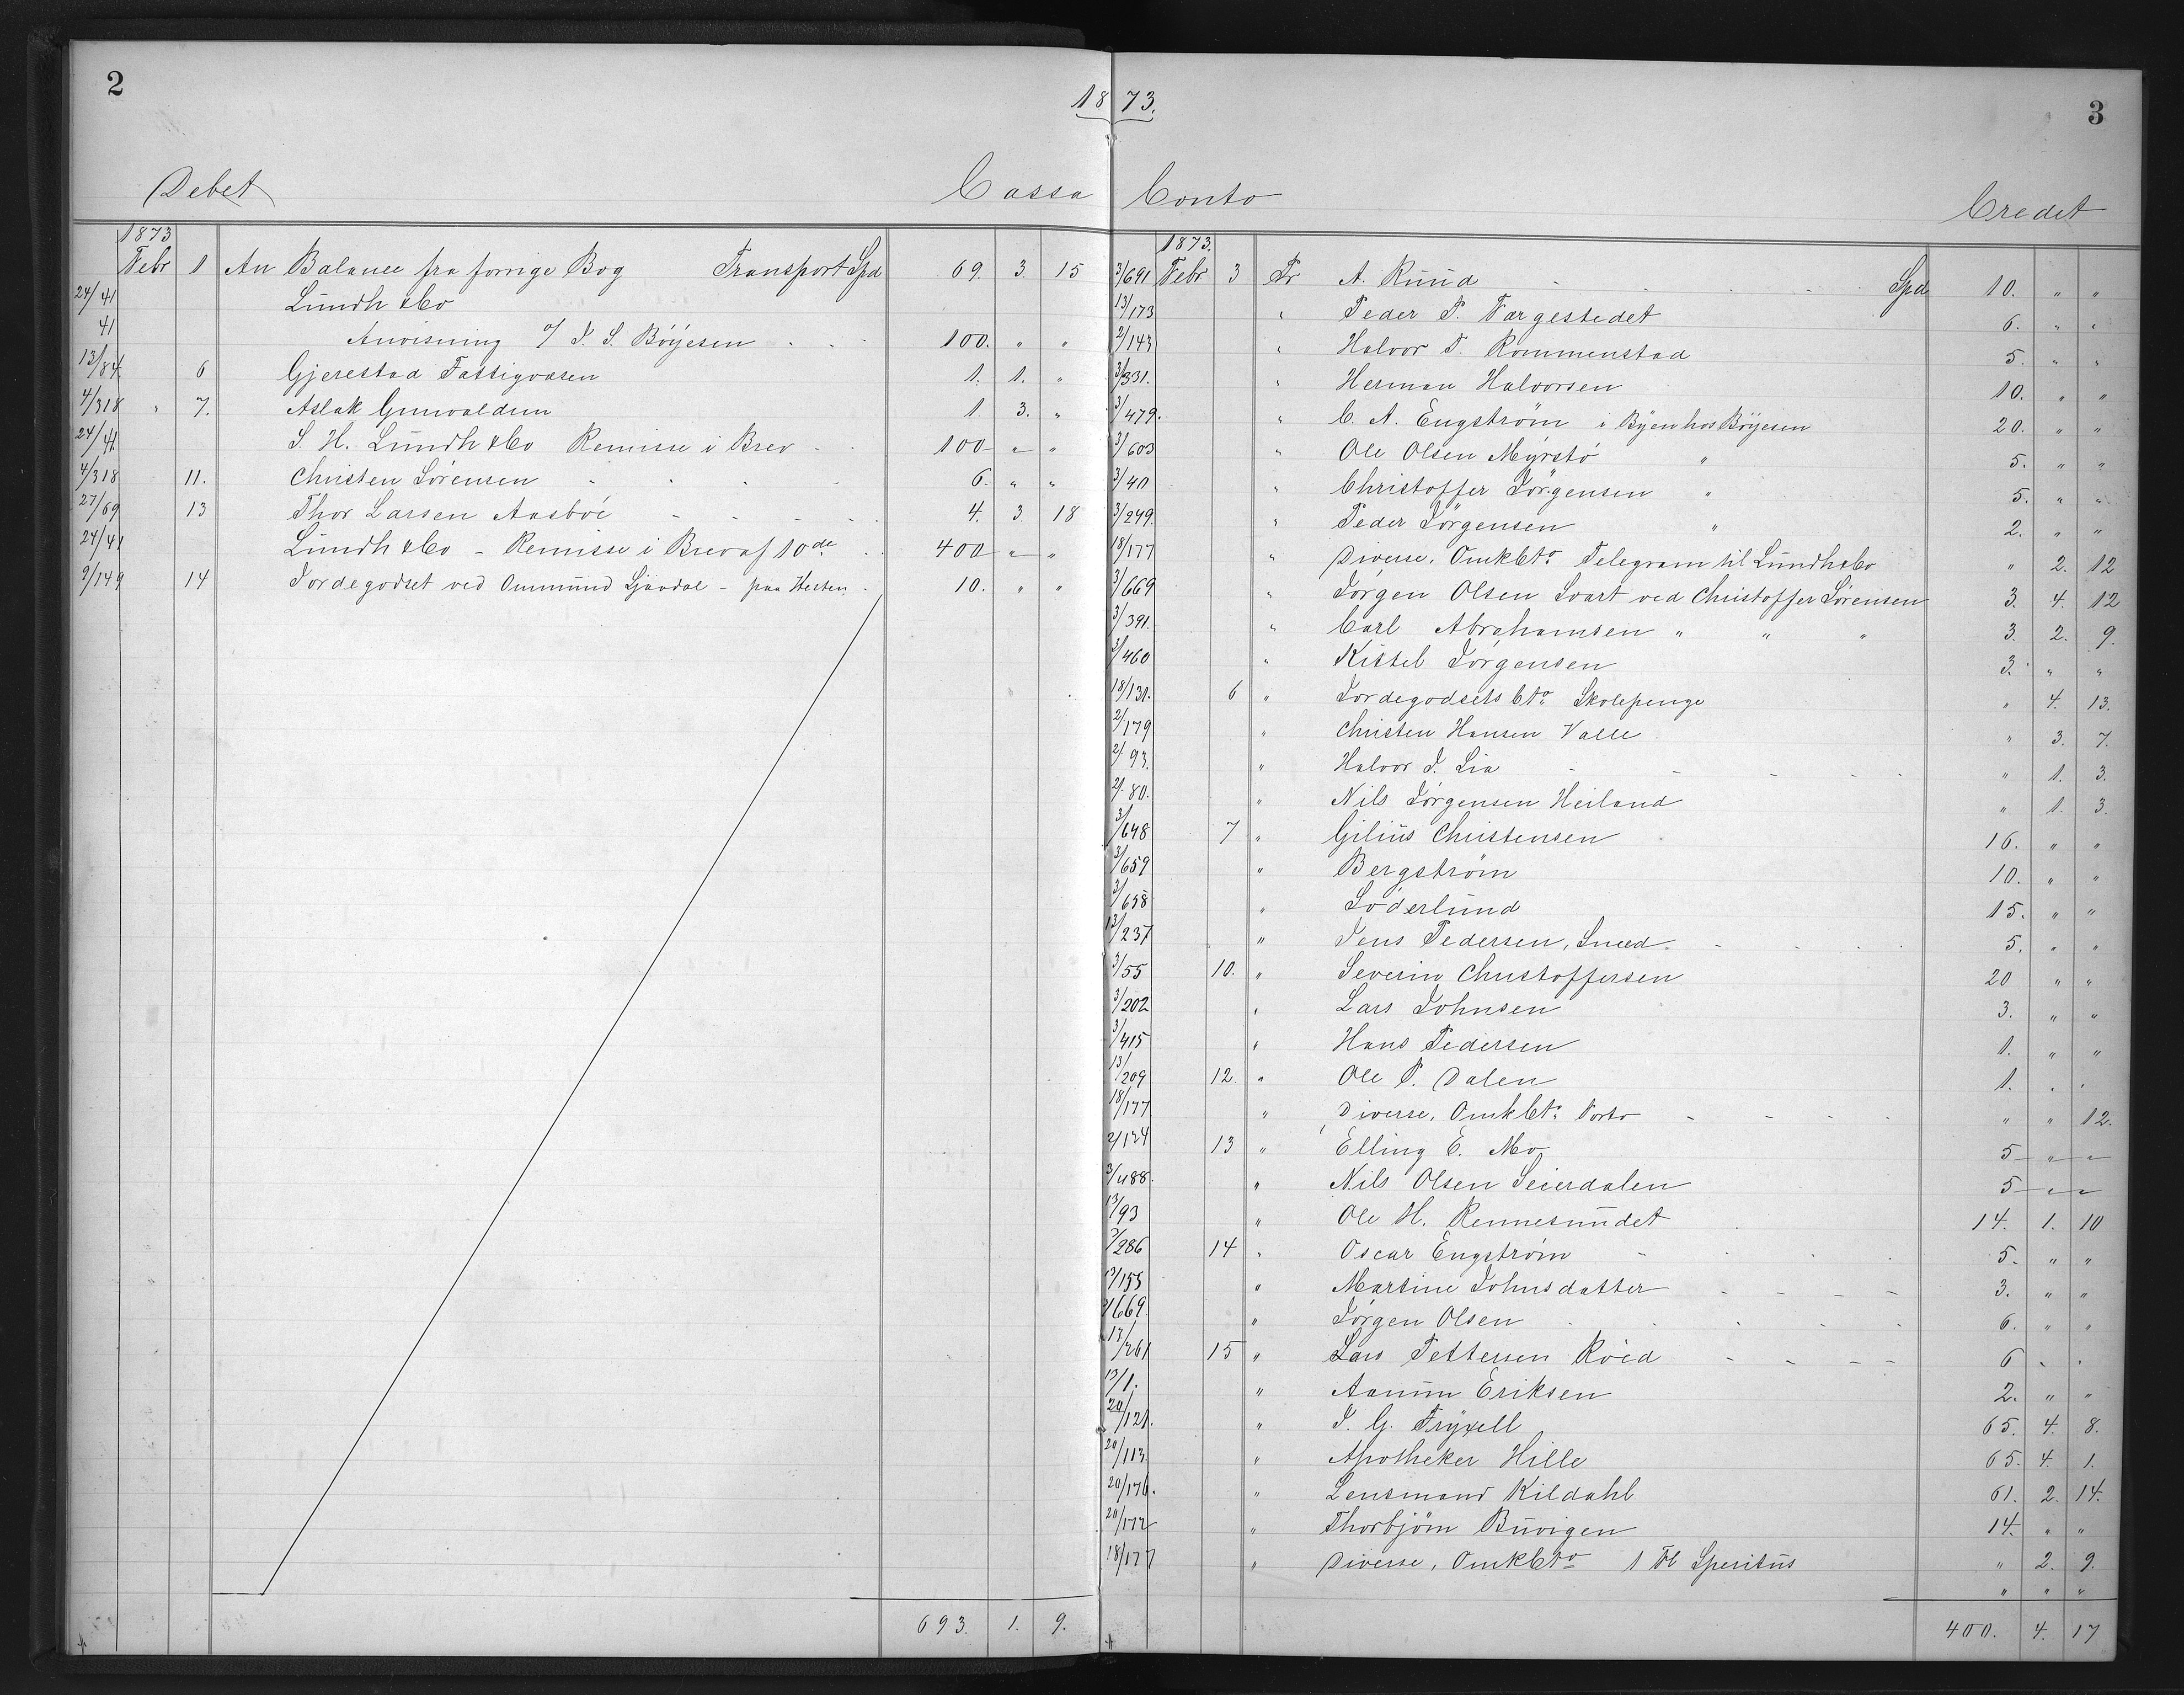 2
1873.
3
Debet Cassa Conto Credit
1873
Febr 1 An Balance fra forrige Bog Transport Spd 69. 3. 15
24/41 Lündh & Co
41 Anvisning o/ J. S. Böÿesen 100. " "
13/84 6 Gjerestad Fattigvæsen 1. 1. "
4/318 " 7. Aslak Gunvaldsen 1 3. "
24/41 S. H. Lündh & Co Remisse i Brev 100 " "
4/318 11. Christen Sörensen 6. " "
27/69 13 Thor Larsen Aasböe 4. 3. 18
24/41 Lündh & Co - Remisse i Brev af 10de 400 " "
9/149 14 Jordegodset ved Ommund Sjövdal - paa Hesten 10. " "
693. 1. 9.
1873.
3/691 Febr 3 Pr A. Ruud Spd 10. " "
13/173 " Peder P. Fargestedet 6. " "
2/143 " Halvor T. Rommenstad 5. " "
3/331. " Herman Halvorsen 10. " "
3/479. " C. A. Engström i Bÿen hos Böÿesen 20. " "
3/603 " Ole Olsen Mÿrstö " 5. " "
3/40 " Christoffer Jörgensen " 5. " "
3/249. " Peder Jörgensen " 2. " "
18/177 " Diverse, Omk Cto Telegram til Lündh & Co " 2. 12
3/669 " Jörgen Olsen Svart ved Christoffer Sörensen 3. 4. 12
3/391. " Carl Abrahamsen " " " 3. 2. 9.
3/460 " Kittel Jörgensen 3. " "
18/131. 6 " Jordegodsets Cto Skolepenge " 4. 13.
2/179 " Christen Hansen Valle " 3. 7.
2/93. " Halvor J. Lia " 1. 3.
2/80. " Nils Jörgensen Heiland " 1. 3.
3/648 7 " Gilius Christensen 16. " "
3/659 " Bergström 10. " "
3/658 " Söderlund 15. " "
13/237 " Jens Pedersen, Smed 5. " "
3/55 10. " Severin Christoffersen 20 " "
3/202 " Lars Johnsen 3. " "
3/415 " Hans Pedersen 1. " "
13/209 12. " Ole P. Dalen 1. " "
18/177 " Diverse, Omk Cto Porto " " 12.
2/124 13 " Elling E. Mo 5 " "
3/488. " Nils Olsen Seierdalen 5 " "
13/93 " Ole H. Rennesundet 14. 1. 10
3/286 14 " Oscar Engström 5. " "
13/155 " Martine Johnsdatter 3. " "
3/669 " Jörgen Olsen 6. " "
13/261 15 " Lars Pettersen Röed 6 " "
13/1. " Aanun Eriksen 2. " "
20/121. " J. G. Frÿxell 65. 4. 8.
20/113 " Apotheker Hille 65. 4. 1.
20/176. " Lensmand Kildahl 61. 2. 14.
20/172 " Thorbjörn Buvigen 14. " "
18/177 " Diverse, Omk Cto 1 Fl Speritus " 2. 9.
" " "
400. 4. 17